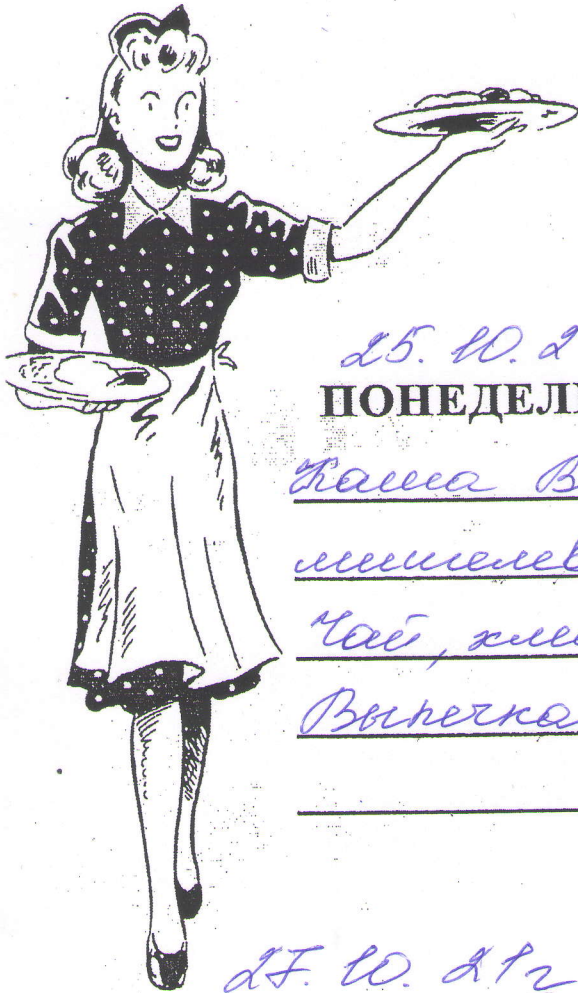 25.10.2
ПОНЕДЕЛЬ
Каша В
Чай, хле
Выпечка
27.10.21г